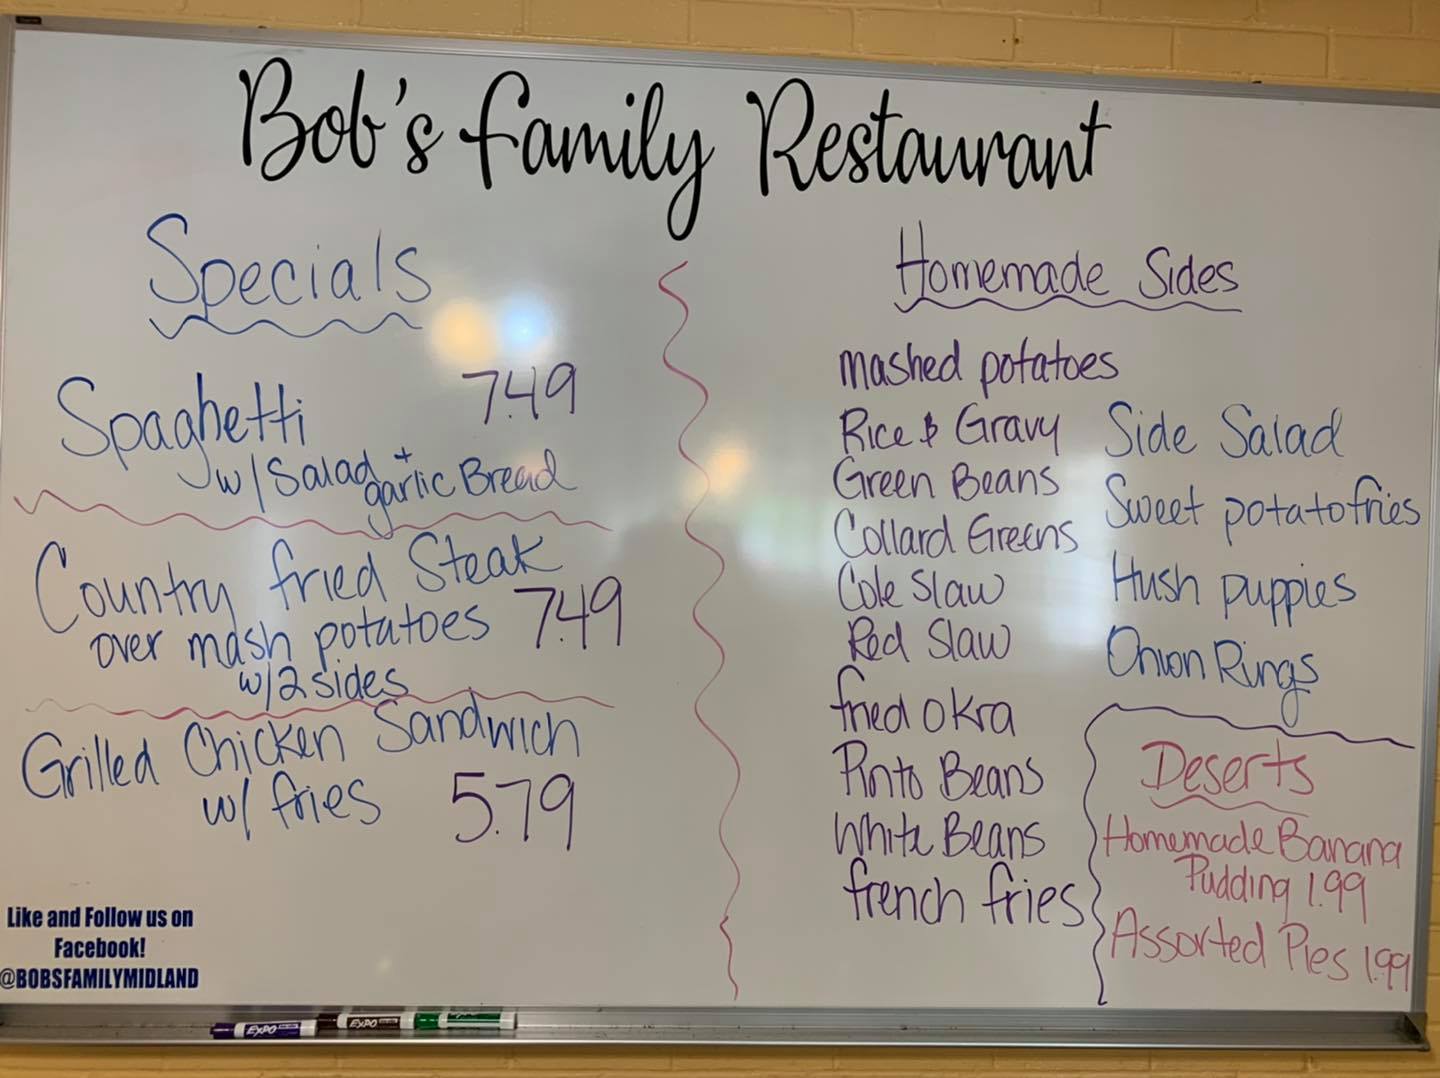 Bob's Family Restaurant
Specials
Spaghetti 7.49
w/ Salad + garlic Bread
Country fried Steak
over mash potatoes 7.49
w/ 2 sides
Grilled Chicken Sandwich
w/ fries 5.79
Like and Follow us on
Facebook!
@BOBSFAMILYMIDLAND
Homemade Sides
mashed potatoes
Rice & Gravy
Green Beans
Collard Greens
Cole Slaw
Red Slaw
fried okra
Pinto Beans
White Beans
french fries
Side Salad
Sweet potato fries
Hush puppies
Onion Rings
Deserts
Homemade Banana
Pudding 1.99
Assorted Pies 1.99
EXPO
EXPO